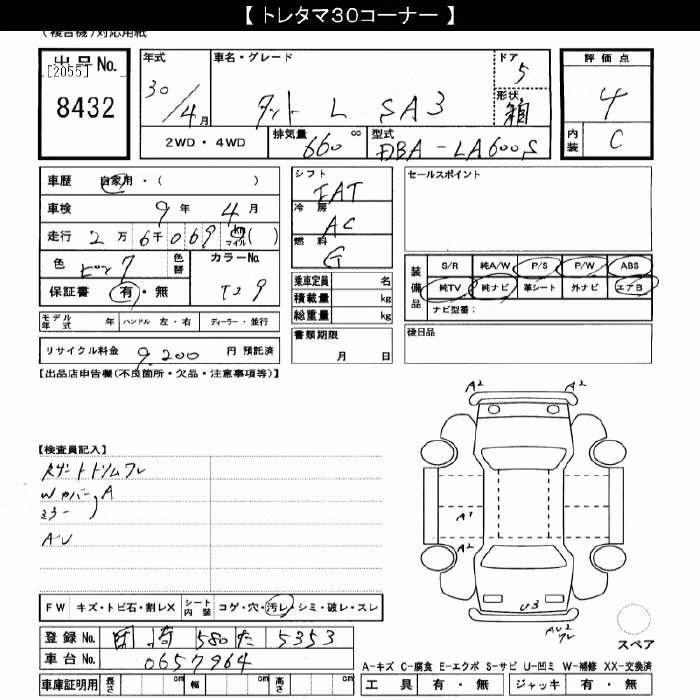 【 トレタマ30コーナー 】
(複合機)対応用紙
出品No.
[2055]
8432
年式
30/4月
車名・グレード
タント L SA3
ドア
5
形状
箱
評価点
4
内装
C
2WD・4WD
排気量
660 cc
型式
DBA-LA600S
車歴 自家用・( )
車検 9年 4月
走行 2万6千069 km マイル ( )
色
ピンク
色替
カラーNo.
T29
保証書 有・無
シフト
FAT
冷房
AC
燃料
G
乗車定員 名
積載量 kg
総重量 kg
セールスポイント
装備品
S/R 純A/W P/S P/W ABS
純TV 純ナビ 革シート 外ナビ エアB
ナビ型番:
モデル年式 年 ハンドル 左・右 ディーラー・並行
リサイクル料金 9,200 円 預託済
書類期限
月 日
後日品
【出品店申告欄(不良箇所・欠品・注意事項等)】
【検査員記入】
Wカバー A
ミラー
AU
A2 A2
A1
A2
U3
AU2
スペア
FW キズ・トビ石・割レX シート内装 コゲ・穴・汚レ・シミ・破レ・スレ
登録No. 580 た 5353
車台No. 0657964
A-キズ C-腐食 E-エクボ S-サビ U-凹ミ W-補修 XX-交換済
車庫証明用 長さ cm 幅 cm 高さ cm
工具 有・無 ジャッキ 有・無